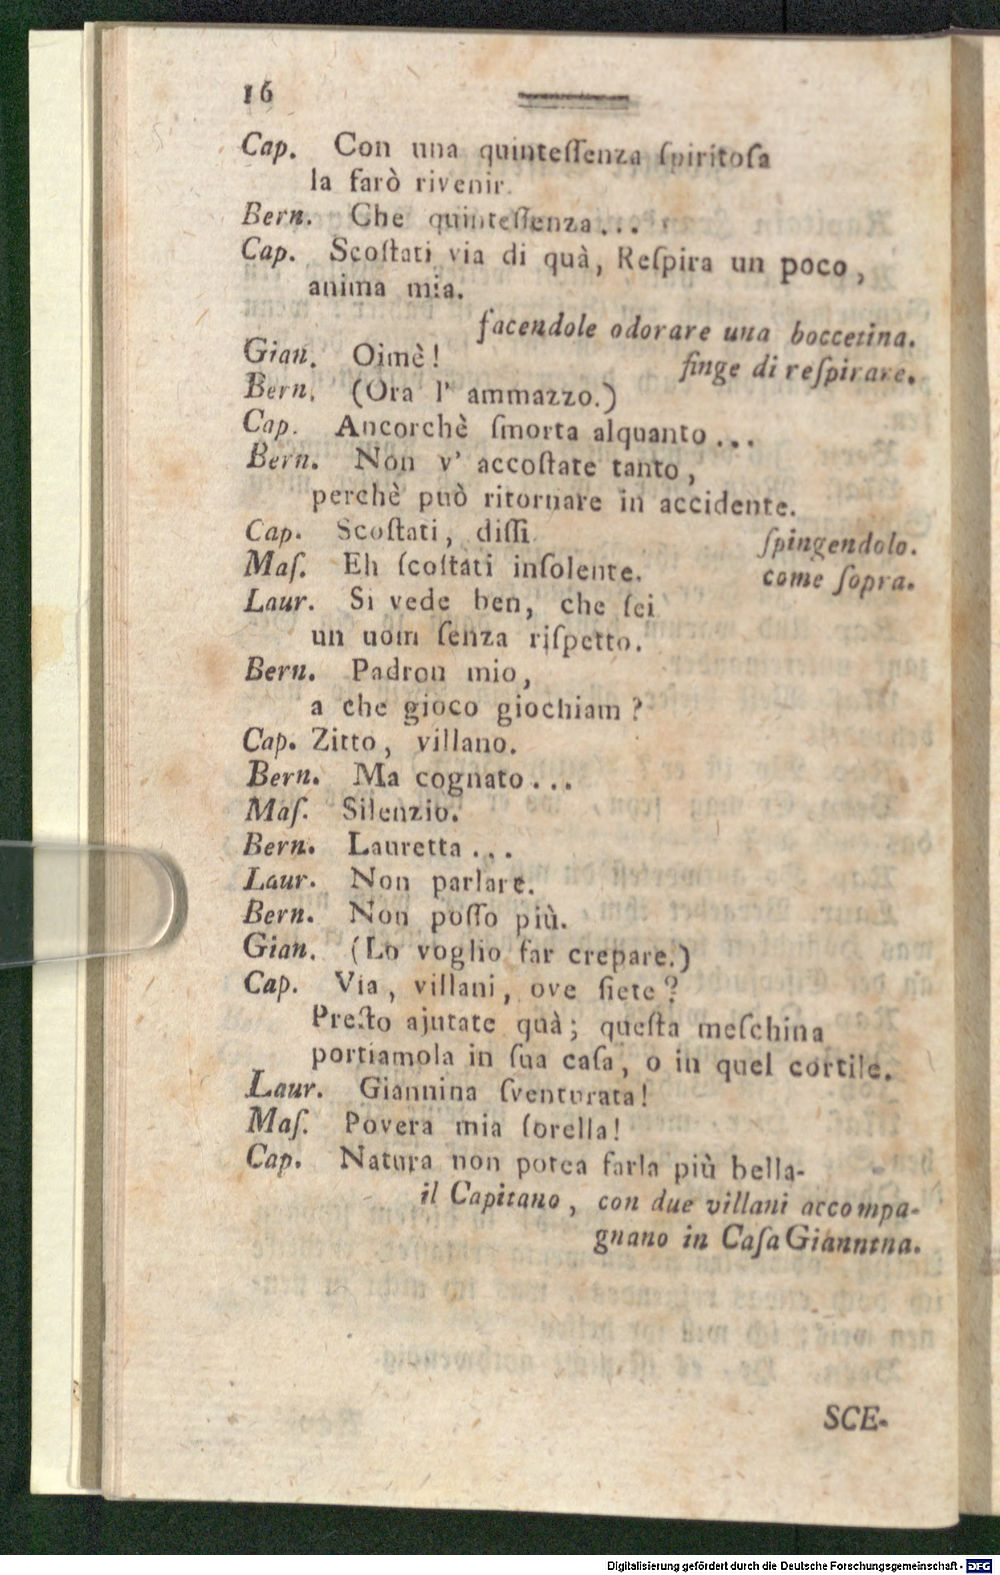 16
Cap. Con una quinteſſenza ſpiritoſa
la farò rivenir.
Bern. Che quinteſſenza...
Cap. Scoſtati via di quà, Reſpira un poco,
anima mia.
facendole odorare una boccetina.
Gian. Oimè! finge di reſpirare.
Bern. (Ora l' ammazzo.)
Cap. Ancorchè ſmorta alquanto...
Bern. Non v' accoſtate tanto,
perchè può ritornare in accidente.
Cap. Scoſtati, diſſi. ſpingendolo.
Maſ. Eh ſcoſtati inſolente. come ſopra.
Laur. Si vede ben, che ſei
un uom ſenza riſpetto.
Bern. Padron mio,
a che gioco giochiam?
Cap. Zitto, villano.
Bern. Ma cognato...
Maſ. Silenzio.
Bern. Lauretta...
Laur. Non parlare.
Bern. Non poſſo più.
Gian. (Lo voglio far crepare.)
Cap. Via, villani, ove ſiete?
Preſto ajutate quà; queſta meſchina
portiamola in ſua caſa, o in quel cortile.
Laur. Giannina ſventurata!
Maſ. Povera mia ſorella!
Cap. Natura non potea farla più bella-
il Capitano, con due villani accompa-
gnano in Caſa Giannina.
SCE-
Digitalisierung gefördert durch die Deutsche Forschungsgemeinschaft - DFG